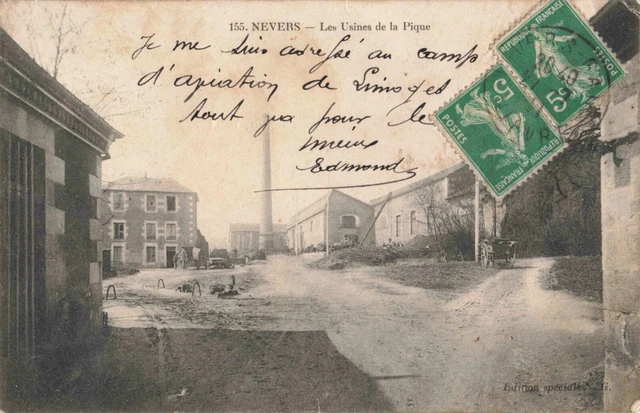 155. NEVERS — Les Usines de la Pique
Je me suis adressé au camp
d'aviation de Limoges
tout va pour le
mieux
Edmond
REPUBLIQUE FRANÇAISE
POSTES
5c
REPUBLIQUE FRANÇAISE
POSTES
5c
Edition spéciale N. G.